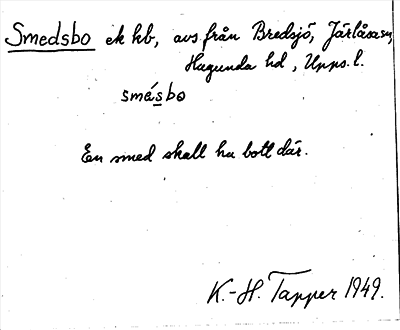 Smedsbo ek kb, avs. från Bredsjö, Järlåsa sn,
Hagunda hd, Upps. l.
smésbo
En smed skall ha bott där.
K.-H. Tapper 1949.